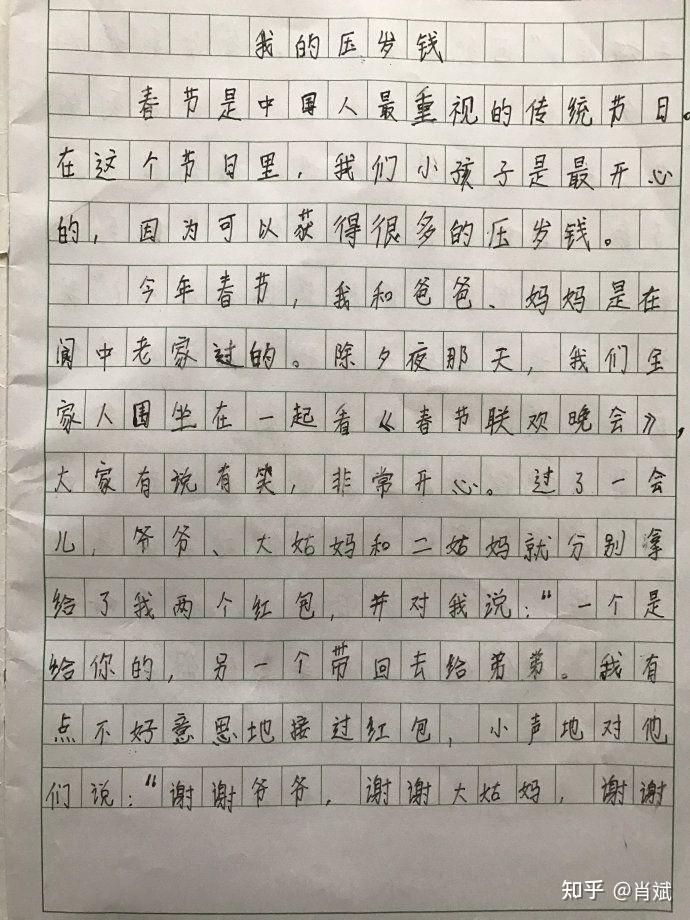 我的压岁钱
春节是中国人最重视的传统节日。
在这个节日里，我们小孩子是最开心
的，因为可以获得很多的压岁钱。
今年春节，我和爸爸、妈妈是在
阆中老家过的。除夕夜那天，我们全
家人围坐在一起看《春节联欢晚会》，
大家有说有笑，非常开心。过了一会
儿，爷爷、大姑妈和二姑妈就分别拿
给了我两个红包，并对我说：“一个是
给你的，另一个带回去给弟弟。我有
点不好意思地接过红包，小声地对他
们说：“谢谢爷爷，谢谢大姑妈，谢谢
知乎 @肖斌